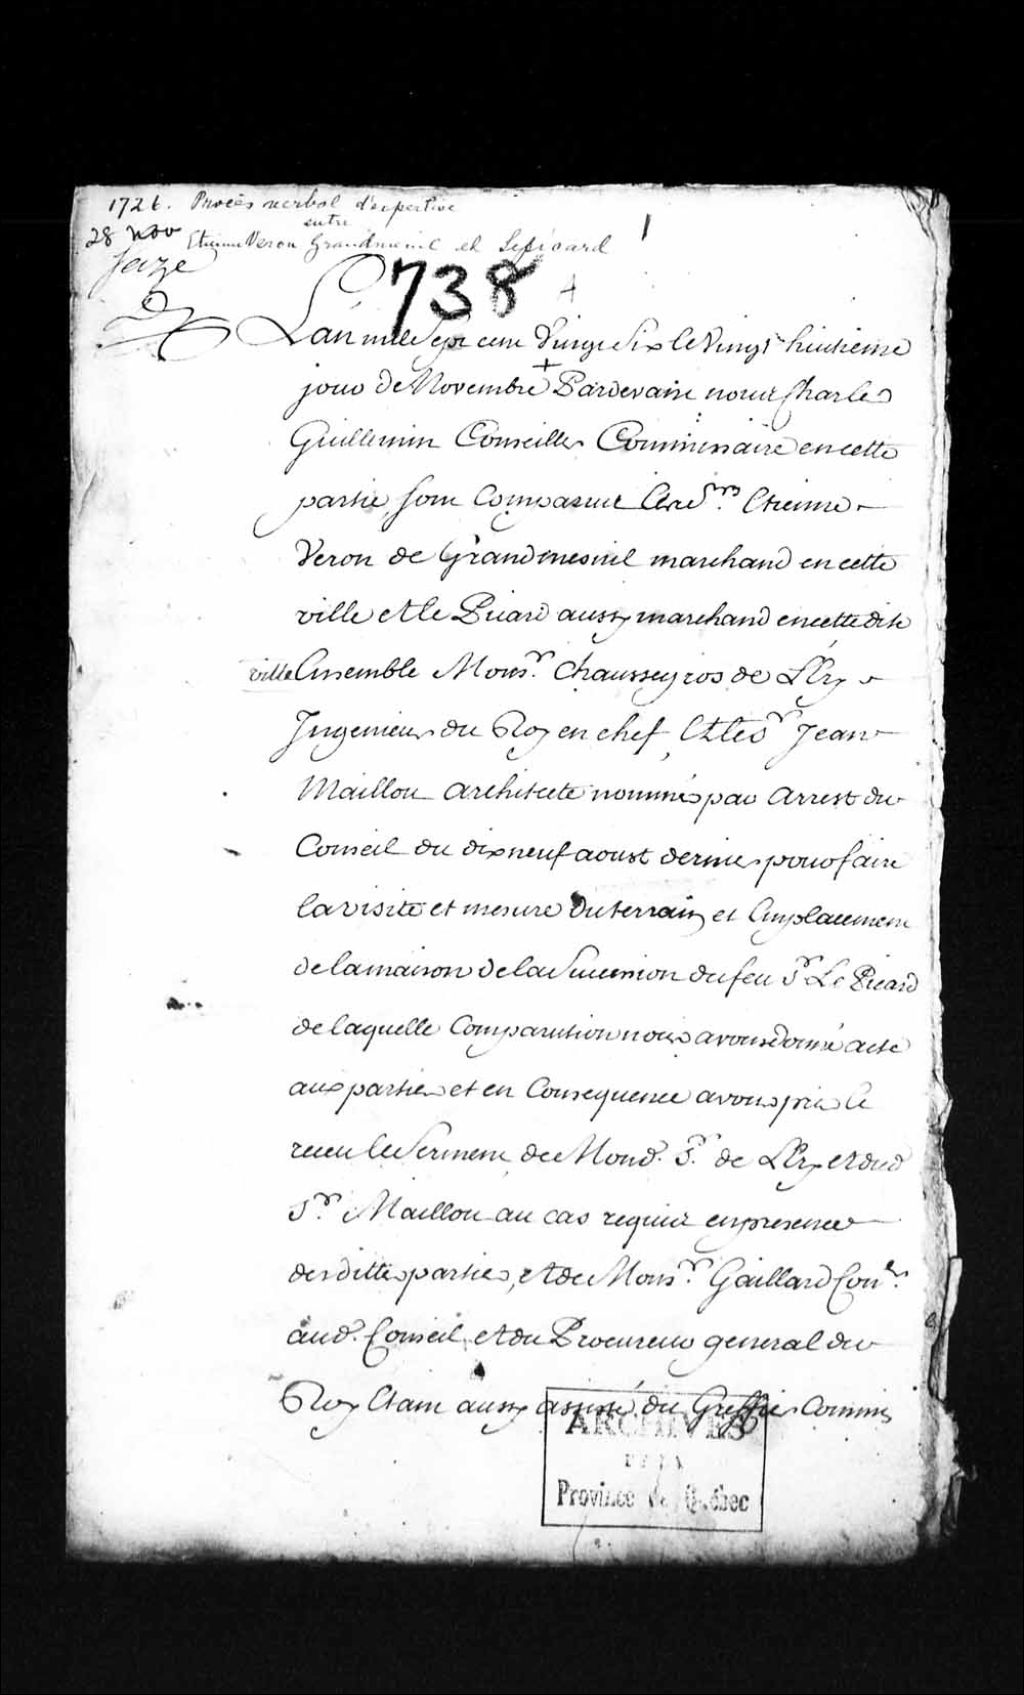 1726. Procès verbal d'expertise
entre
28 nov Etienne Veron Grandmenil et Lepicard
1
738
Lan mille Sept cent Vingt Six le Vingt huitieme
jour de Novembre + Pardevant nous Charles
Guillemin Conseiller Commissaire en cette
partie sont Comparus Etienne
Veron de Grandmesnil marchand en cette
ville et le Picard aussy marchand en cette dite
ville Ensemble Monsr. Chaussegros de Lery
Ingenieur du Roy en chef, Et le Sr Jean
Maillou architecte nommés par arrest du
Conseil du dix neuf aoust dernier pour faire
la visite et mesure du terrain et Emplacement
de la maison de la Succession du feu Sr Le Picard
de laquelle Comparution nous avons donné acte
aux parties et en Consequence avons pris le
receu le Serment de Mond. Sr. de Lery et dud
Sr. Maillou au cas requis en presence
des dittes parties, et de Monsr. Gaillard Coner.
aud. Conseil et du Procureur general du
Roy Etant aussy assisté du Greffier Commis
ARCHIVES
DE LA
Province de Québec